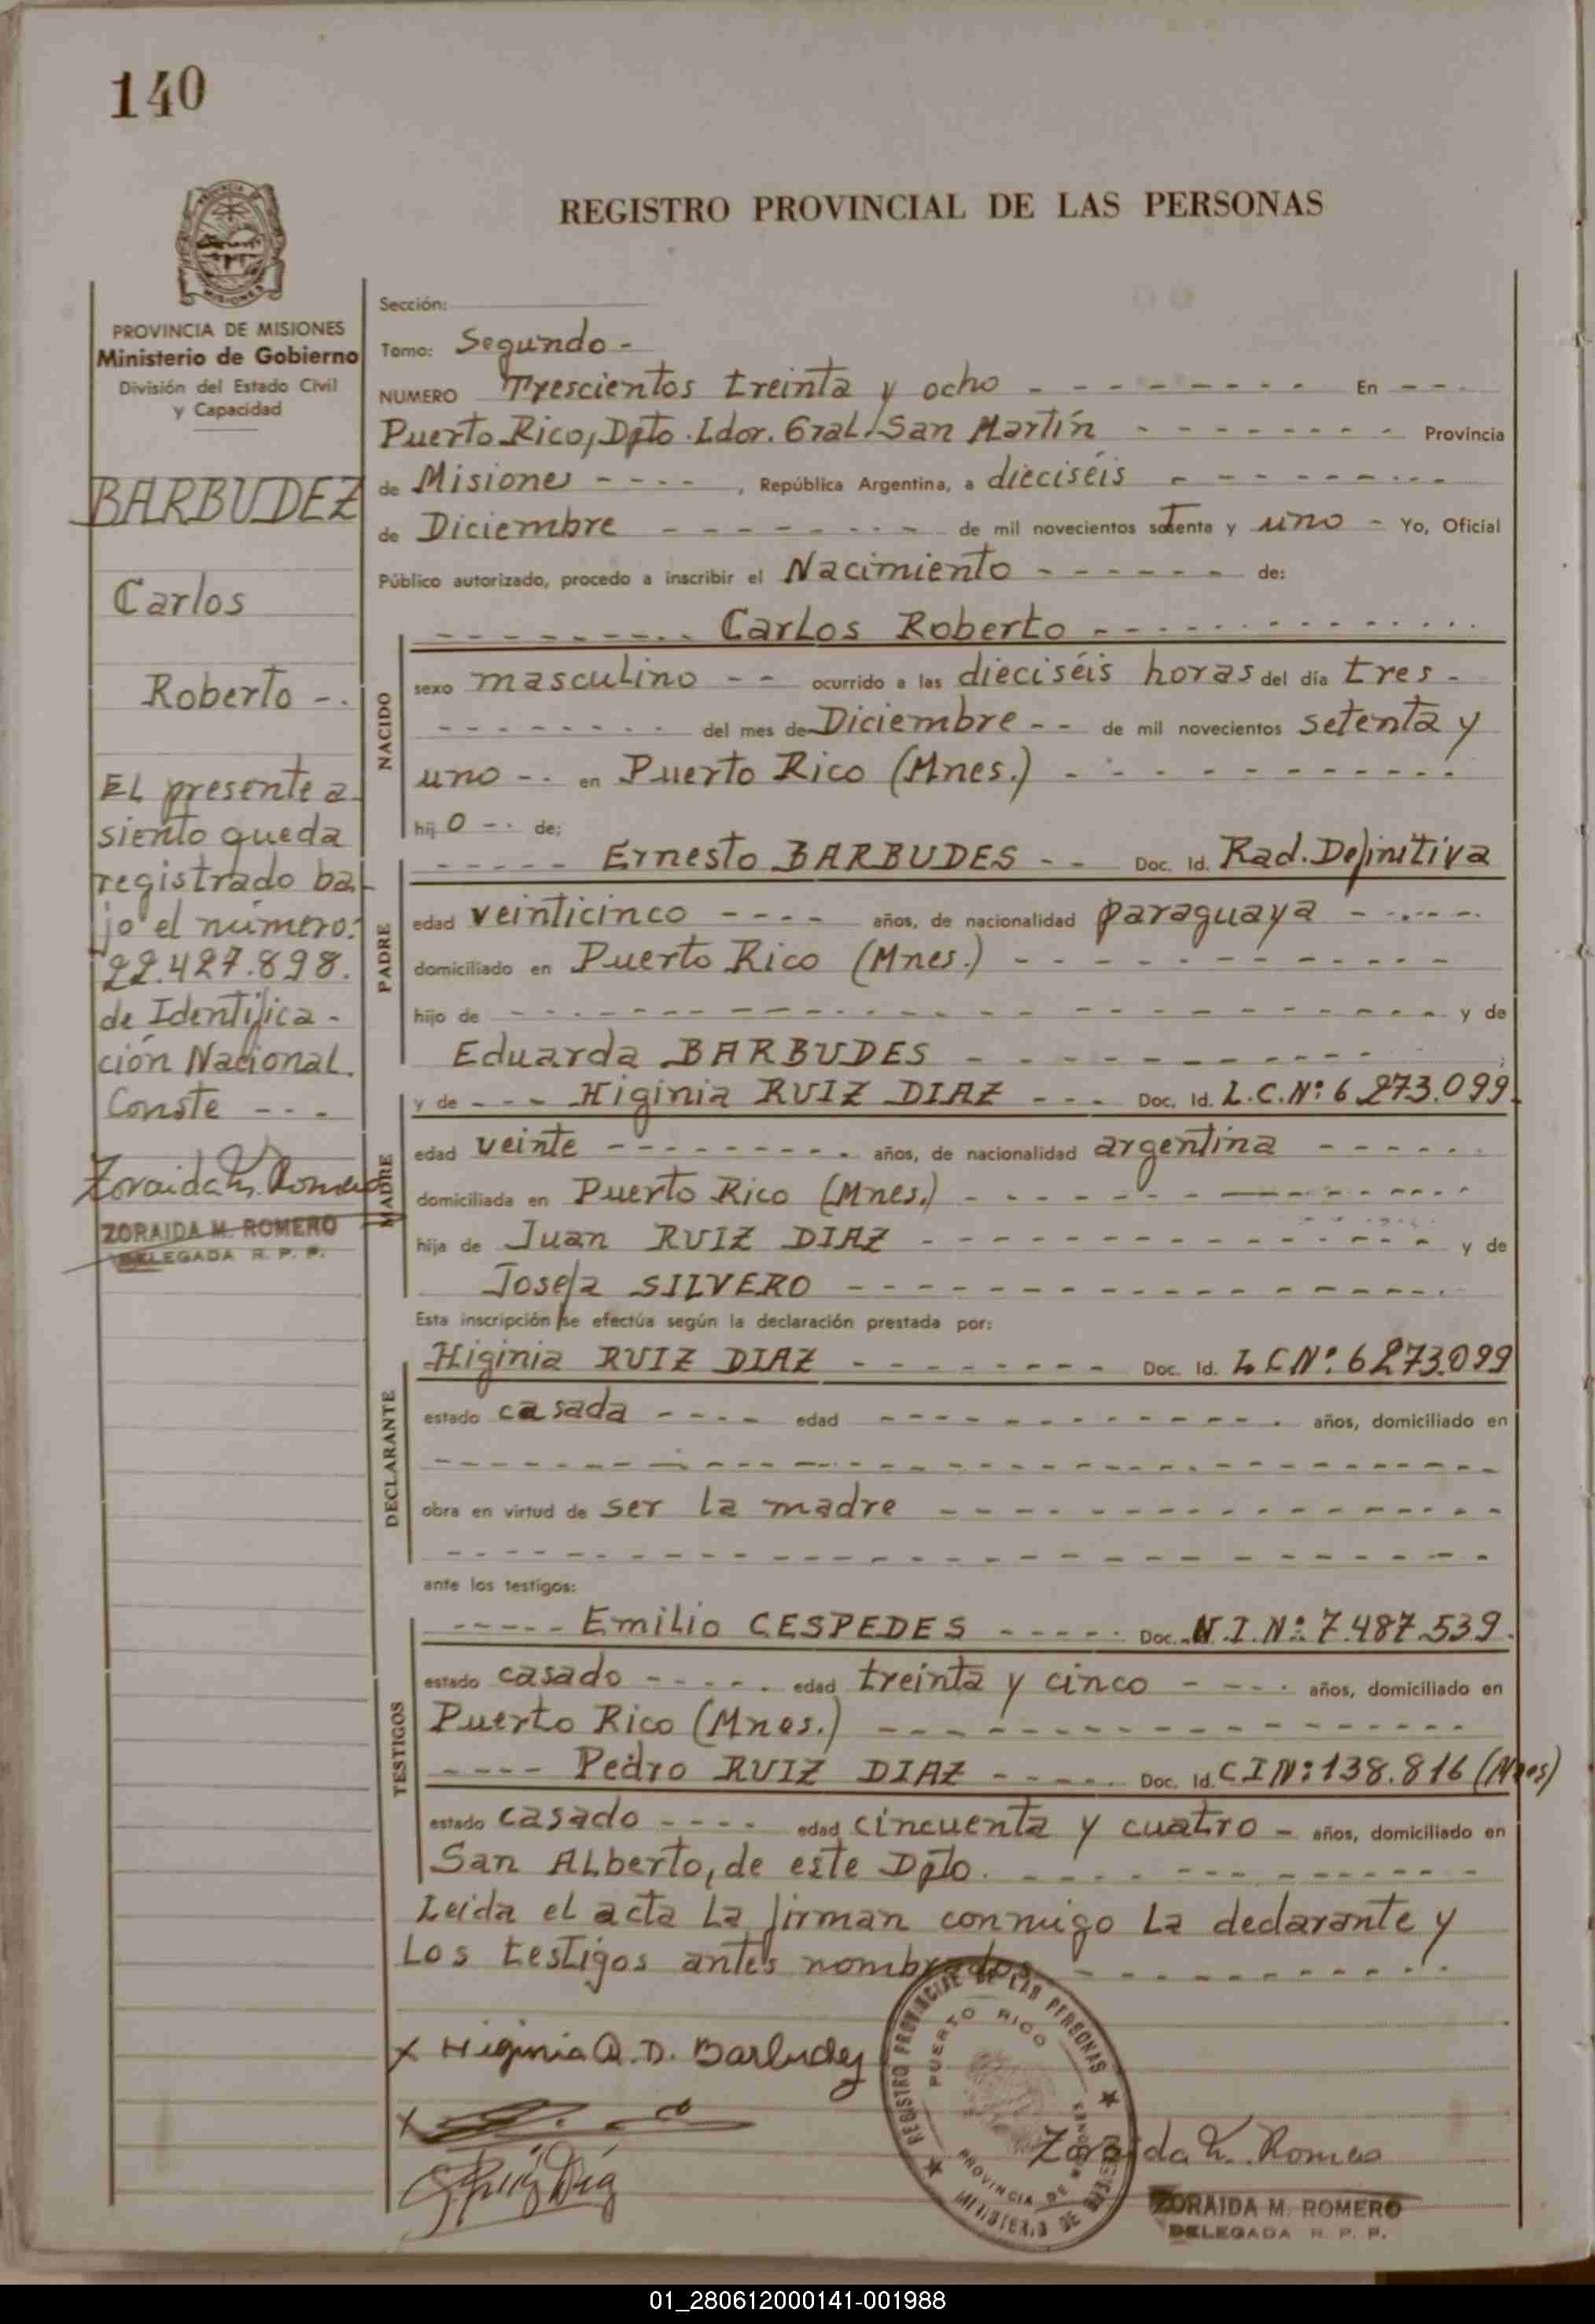 140
REGISTRO PROVINCIAL DE LAS PERSONAS
PROVINCIA DE MISIONES
Ministerio de Gobierno
División del Estado Civil
y Capacidad
BARBUDEZ
Carlos
Roberto -.
El presente a
siento queda
registrado ba-
jo el número:
22.427.898.
de Identifica-
ción Nacional.
Conste - - -
Zoraida M. Romero
ZORAIDA M. ROMERO
DELEGADA R. P. P.
Sección:
Tomo: Segundo -
NUMERO Trescientos treinta y ocho - - - En - - -
Puerto Rico, Dpto. Ldor. Gral. San Martín - - - Provincia
de Misiones - - - - , República Argentina, a dieciséis - - -
de Diciembre - - - de mil novecientos setenta y uno - Yo, Oficial
Público autorizado, procedo a inscribir el Nacimiento - - - de:
- - - Carlos Roberto - - -
NACIDO
sexo masculino - - ocurrido a las dieciséis horas del día tres -
- - - del mes de Diciembre - - de mil novecientos setenta y
uno - . en Puerto Rico (Mnes.) - - -
hij o - . de:
PADRE
- - - Ernesto BARBUDES - - Doc. Id. Rad. Definitiva
edad veinticinco - - - - años, de nacionalidad paraguaya - - -
domiciliado en Puerto Rico (Mnes.) - - -
hijo de - - - y de
Eduarda BARBUDES - - - ;
MADRE
y de - - - Higinia RUIZ DIAZ - - - Doc. Id. L.C.Nº 6.273.099.
edad veinte - - - años, de nacionalidad argentina - - -
domiciliada en Puerto Rico (Mnes.) - - -
hija de Juan RUIZ DIAZ - - - y de
Josefa SILVERO - - -
Esta inscripción se efectúa según la declaración prestada por:
DECLARANTE
Higinia RUIZ DIAZ - - - Doc. Id. L C Nº 6273.099
estado casada - - - - edad - - - años, domiciliado en
- - -
obra en virtud de ser la madre - - -
- - -
ante los testigos:
TESTIGOS
- - - Emilio CESPEDES - - - Doc. N.I. Nº 7.487.539.
estado casado - - - edad treinta y cinco - - - años, domiciliado en
Puerto Rico (Mnes.) - - -
- - - - Pedro RUIZ DIAZ - - - Doc. Id. C I Nº 138.816 (Mnes)
estado casado - - - - edad cincuenta y cuatro - años, domiciliado en
San Alberto, de este Dpto. - - -
Leida el acta la firman conmigo la declarante y
los testigos antes nombrados - - -
x Higinia R. D. Barbudez
x
Ruiz Diaz
REGISTRO PROVINCIAL DE LAS PERSONAS
PUERTO RICO
PROVINCIA DE MISIONES
MINISTERIO DE
Zoraida M. Romero
ZORAIDA M. ROMERO
DELEGADA R. P. P.
01_280612000141-001988